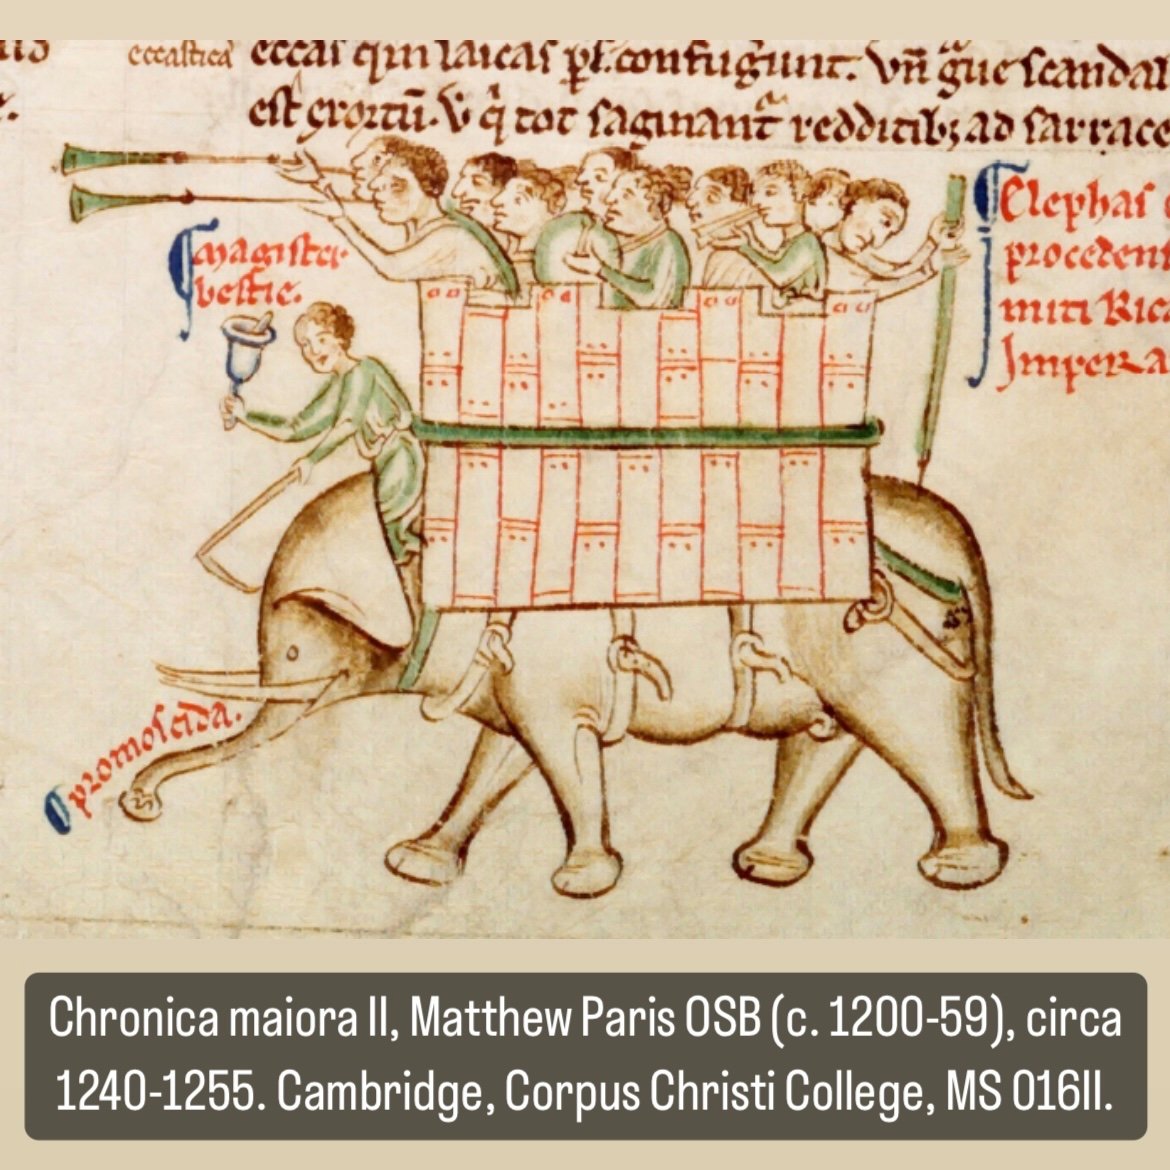 eccastica
eccas qm laicas pt. confugiunt. Vn̄ gͣue scandal
est exortū. V q̄ tot saginant᷑ redditib; ad sarrace
magister
bestie.
Elephas
proceden
miti Ric
Impera
promoscida.
Chronica maiora II, Matthew Paris OSB (c. 1200-59), circa
1240-1255. Cambridge, Corpus Christi College, MS 016II.